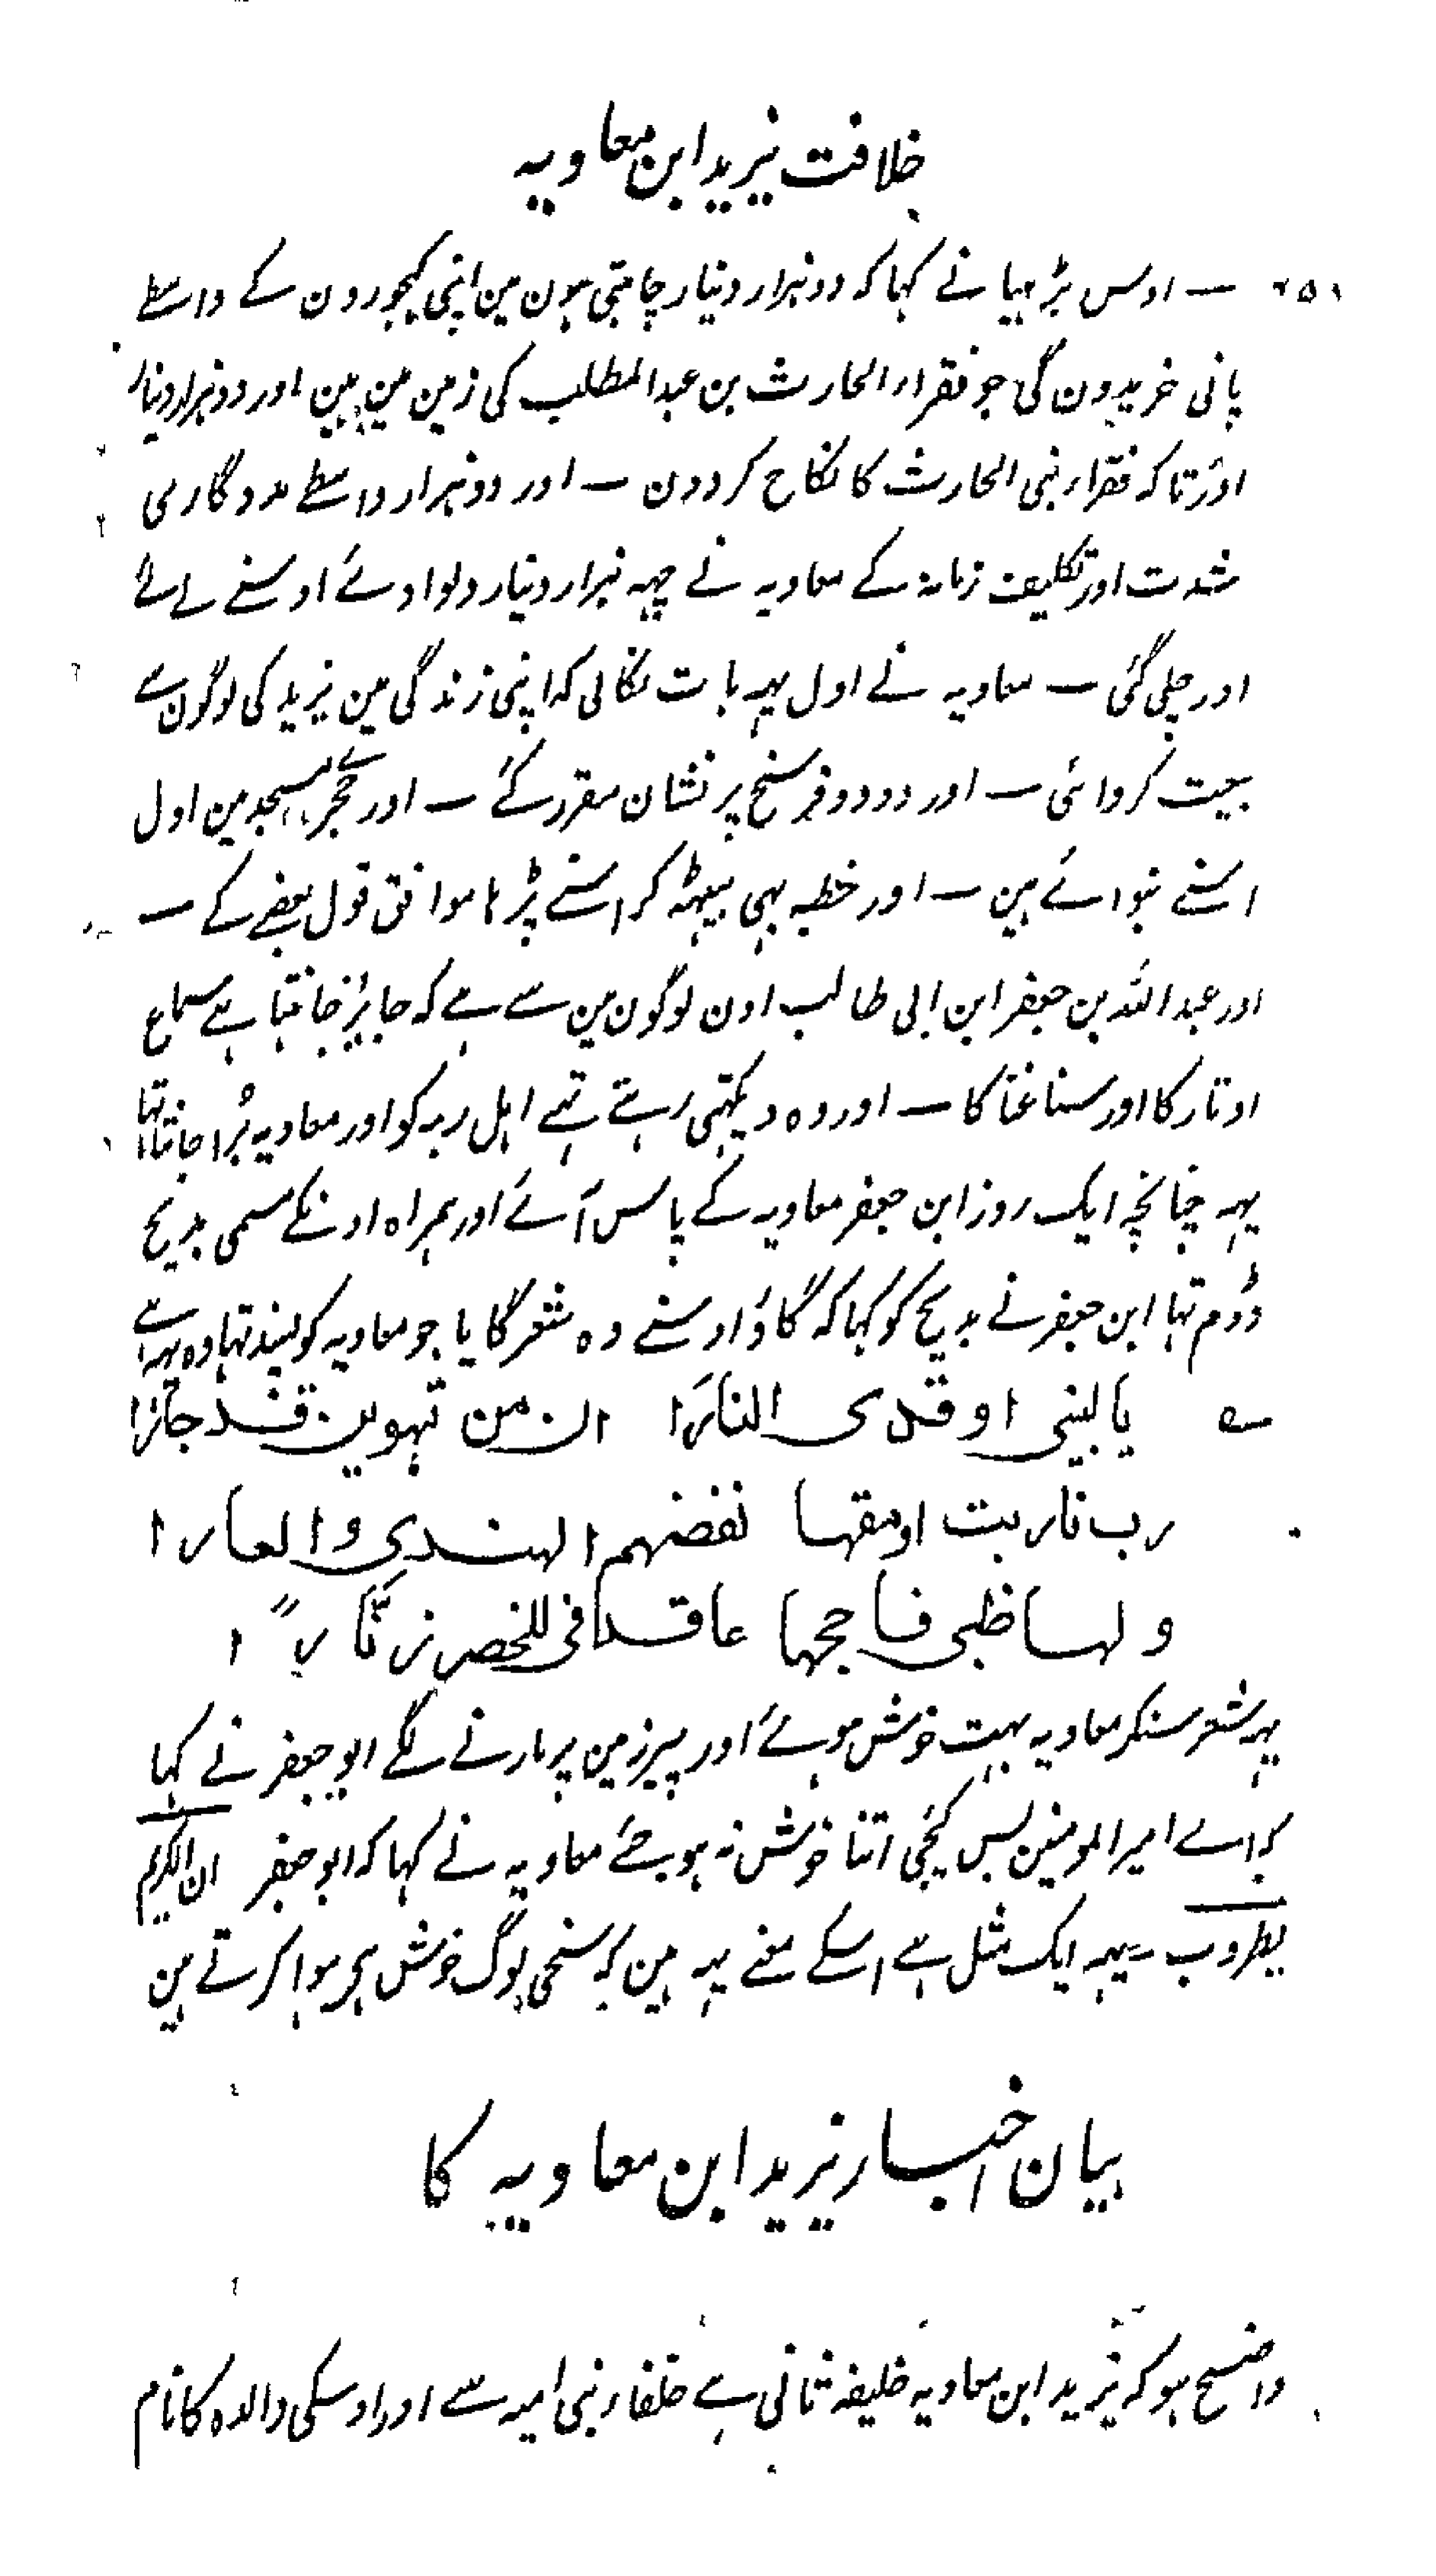 خلافت یزید ابن معاویہ
۲۵۱ — اوس بڑہیا نے کہا کہ دو ہزار دینار چاہتی ہون مین اپنی کہجورون کے واسطے
پانی خریدون گی جو فقراء الحارث بن عبدالمطلب کی زمین مین ہین اور دو ہزار دینار
اور تاکہ فقراء بنی الحارث کا نکاح کردون — اور دو ہزار واسطے مددگاری
شدت اور تکلیف زمانہ کے معاویہ نے چہہ ہزار دینار دلوادئے اوسنے لے لئے
اور چلی گئی — معاویہ نے اول یہہ بات نکالی کہ اپنی زندگی مین یزید کی لوگون سے
بیعت کروائی — اور دو دو فرسنح پر نشان مقرر کئے — اور حجرے مسجد مین اول
اسنے بنوائے ہین — اور خطبہ بہی بیٹہہ کر اسنے پڑہا موافق قول بعضے کے —
اور عبداللہ بن جعفر ابن ابی طالب اون لوگون مین سے ہے کہ جایز جانتا ہے سماع
اوتار کا اور سناغنا کا — اور وہ دیکہتی رہتے تہے اہل ربہ کو اور معاویہ بُرا جانتا تہا
یہہ چنانچہ ایک روز ابن جعفر معاویہ کے پاس آئے اور ہمراہ اونکے مسمی بدیح
ڈوم تہا ابن جعفر نے بدیح کو کہا کہ گاؤ اوسنے وہ شعر گایا جو معاویہ کو پسند تہا وہ یہہ ہے
یالبینی اوقدی النارا ان من تہوین قد جارا
رب نار بت اومقہا نفضہم الہندی والعارا
ولہا ظبی فاججہا عاقد فی للخصر زنّارًا
یہہ شعر سنکر معاویہ بہت خوش ہوئے اور پیر زمین پر مارنے لگے ابوجعفر نے کہا
کہ اے امیرالمومنین بس کیجئی اتنا خوش نہ ہوجئے معاویہ نے کہا کہ ابوجعفر ان الکریم
یطروب — یہہ ایک مثل ہے اسکے معنے یہہ ہین کہ سخی لوگ خوش ہی ہوا کرتے ہین
بیان اخبار یزید ابن معاویہ کا
واضح ہو کہ یزید ابن معاویہ خلیفہ ثانی ہے خلفاء بنی امیہ سے اور اوسکی والدہ کا نام